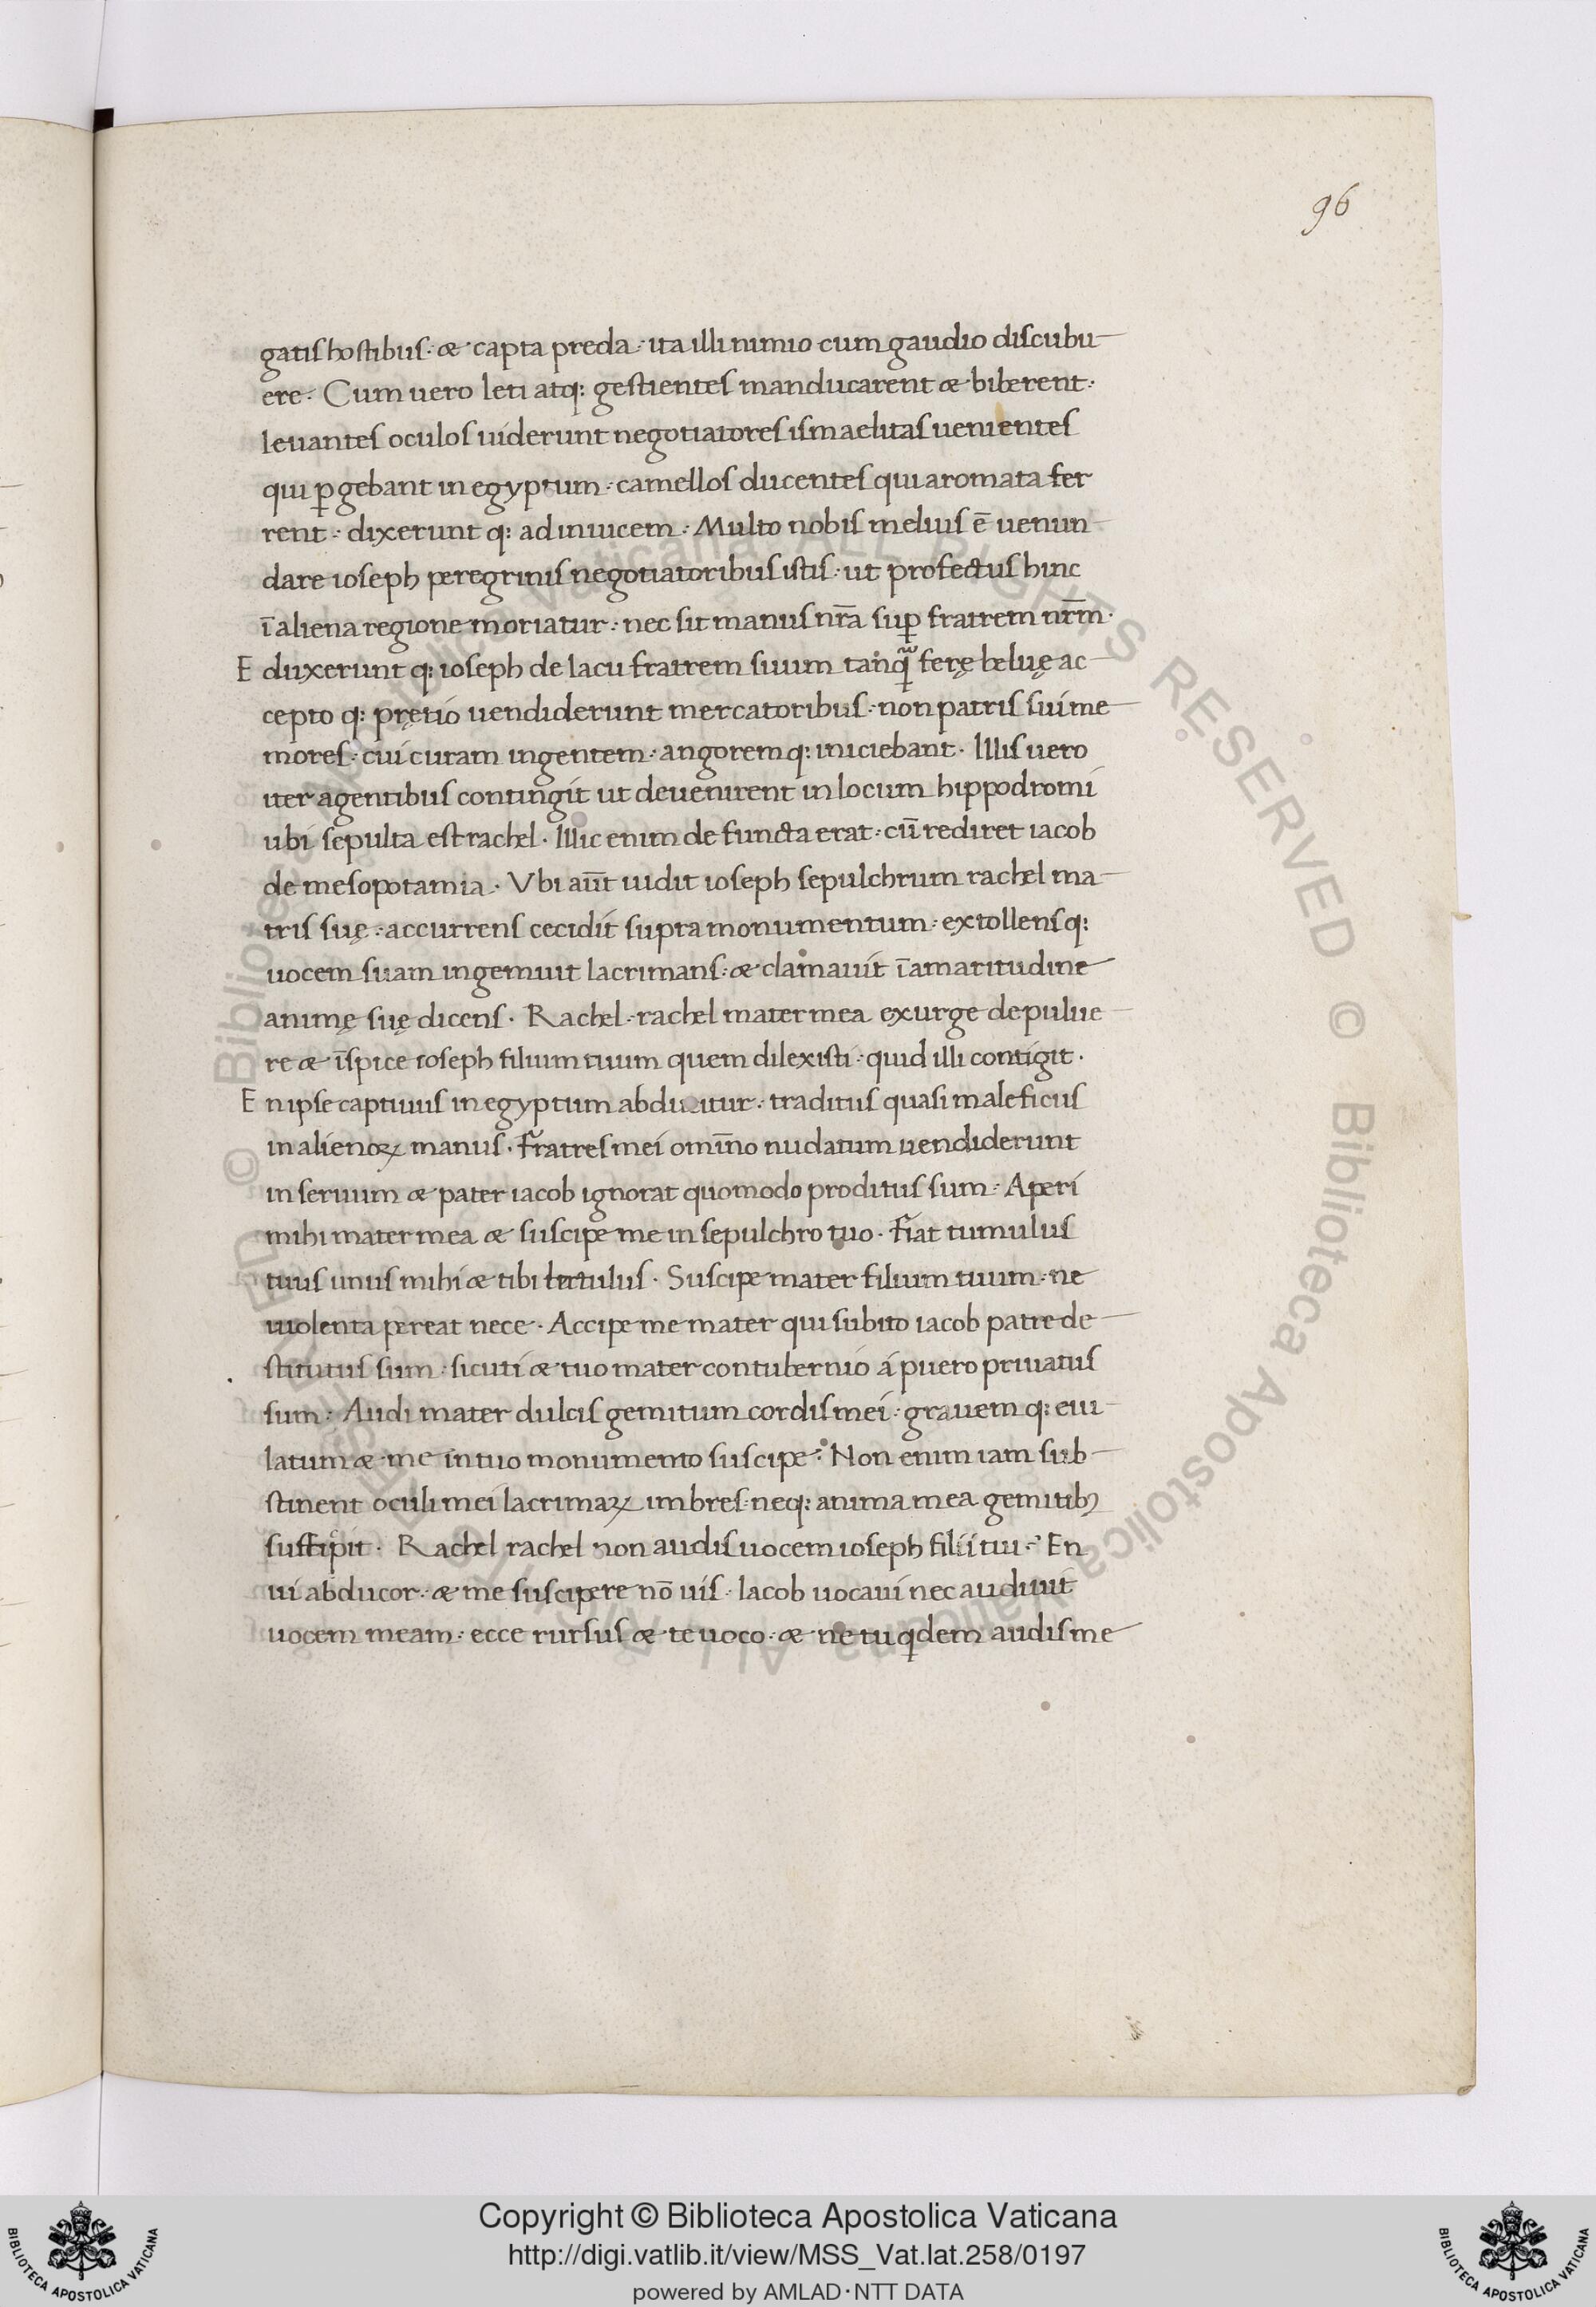 96
gatis hostibus· & capta preda· ita illi nimio cum gaudio discubu
ere· Cum uero leti atq: gestientes manducarent & biberent·
leuantes oculos uiderunt negotiatores ismaelitas uenientes
qui ꝑgebant in egyptum· camellos ducentes qui aromata fer
rent· dixerunt q: ad inuicem· Multo nobis melius ē uenun
dare ioseph peregrinis negotiatoribus istis· ut profectus hinc
ī aliena regione moriatur· nec sit manus nr̄a suꝑ fratrem nr̄m·
E duxerunt q: ioseph de lacu fratrem suum tanq̃ ferę beluę ac
cepto q: prętio uendiderunt mercatoribus· non patris sui me
mores· cui curam ingentem· angorem q: iniciebant· Illis uero
iter agentibus contingit ut deuenirent in locum hippodromi
ubi sepulta est rachel· Illic enim defuncta erat· cū rediret iacob
de mesopotamia· Vbi aūt uidit ioseph sepulchrum rachel ma
tris suę· accurrens cecidit supra monumentum· extollens q:
uocem suam ingemuit lacrimans· & clamauit ī amaritudine
animę suę dicens· Rachel· rachel mater mea exurge de pulue
re & īspice ioseph filium tuum quem dilexisti· quid illi contigit·
E n ipse captiuus in egyptum abducitur· traditus quasi maleficus
in alienoꝝ manus· Fratres mei omīno nudatum uendiderunt
in seruum & pater iacob ignorat quomodo proditus sum· Aperi
mihi mater mea & suscipe me in sepulchro tuo· Fiat tumulus
tuus unus mihi & tibi lectulus· Suscipe mater filium tuum· ne
uiolenta pereat nece· Accipe me mater qui subito iacob patre de
stitutus sum· sicuti & tuo mater contubernio á puero priuatus
sum· Audi mater dulcis gemitum cordis mei· grauem q: eiu
latum & me in tuo monumento suscipe· Non enim iam sub
stinent oculi mei lacrimaꝝ imbres· neq: anima mea gemitibꝰ
Rachel rachel non audis uocem ioseph filii tui· En
ui abducor· & me suscipere nō uis· Iacob uocaui nec audiuit
uocem meam· ecce rursus & te uoco· & ne tu qͥdem audis me
© Biblioteca Apostolica Vaticana ALL RIGHTS RESERVED © Biblioteca Apostolica Vaticana ALL RIGHTS RESERVED
Copyright © Biblioteca Apostolica Vaticana
http://digi.vatlib.it/view/MSS_Vat.lat.258/0197
powered by AMLAD·NTT DATA
BIBLIOTECA APOSTOLICA VATICANA
BIBLIOTECA APOSTOLICA VATICANA